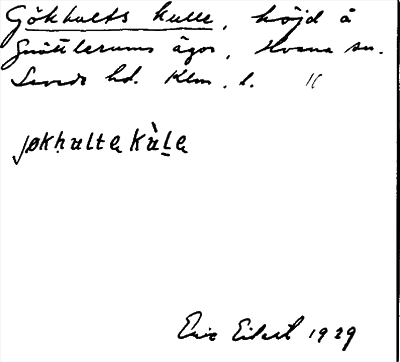 Gökhults kulle, höjd å
Gnöttlerums ägor, Hvena sn.
Sevede hd. Klm. l. 1(
jøkḥulta kùl̲a
Eric Eilert 1929